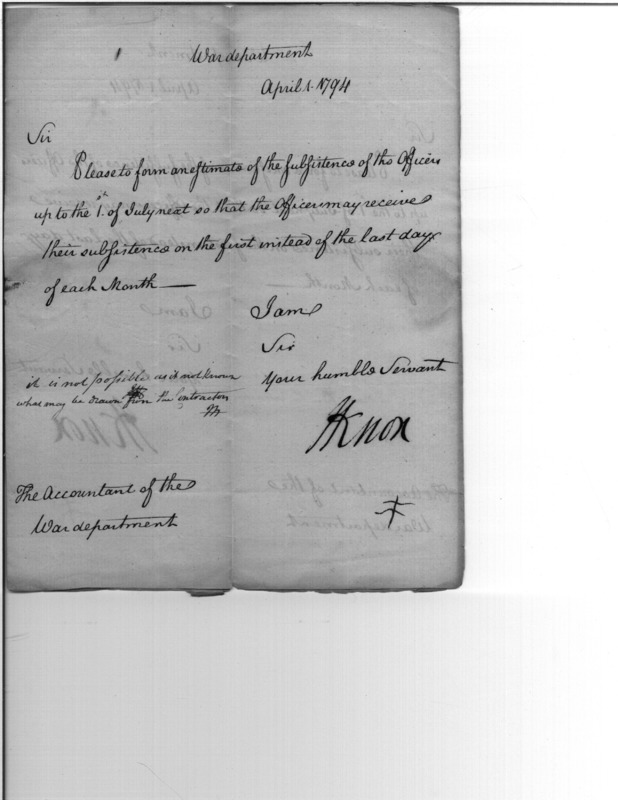 War department
April 1. 1794
Sir
Please to form an estimate of the subsistence of the Officers
up to the 1.st of July next so that the Officers may receive
their subsistence on the first instead of the last day
of each Month —
I am
Sir
Your humble Servant
it is not possible as it not known
what may be drawn from the Contractors
HKnox
The Accountant of the
War department